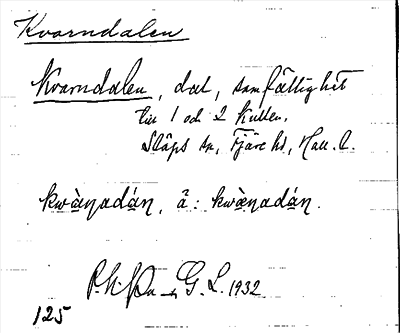 Kvarndalen
Kvarndalen, dal, samfällighet
till 1 och 2 Kullen.
Släps sn, Fjäre hd, Hall. l.
kwànadán, ä: kwànadán.
G. L. 1932
125